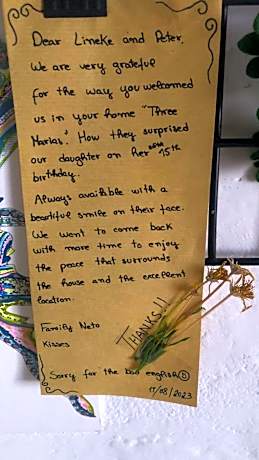 Dear Lineke and Peter,
We are very grateful
for the way you welcomed
us in your home "Three
Marias". How they surprised
our daughter on her 15th
birthday.
Always available with a
beautiful smile on their face.
We want to come back
with more time to enjoy
the peace that surrounds
the house and the excellent
location.
Family Neto
Kisses
THANKS!!
Sorry for the bad english
17/08/2023